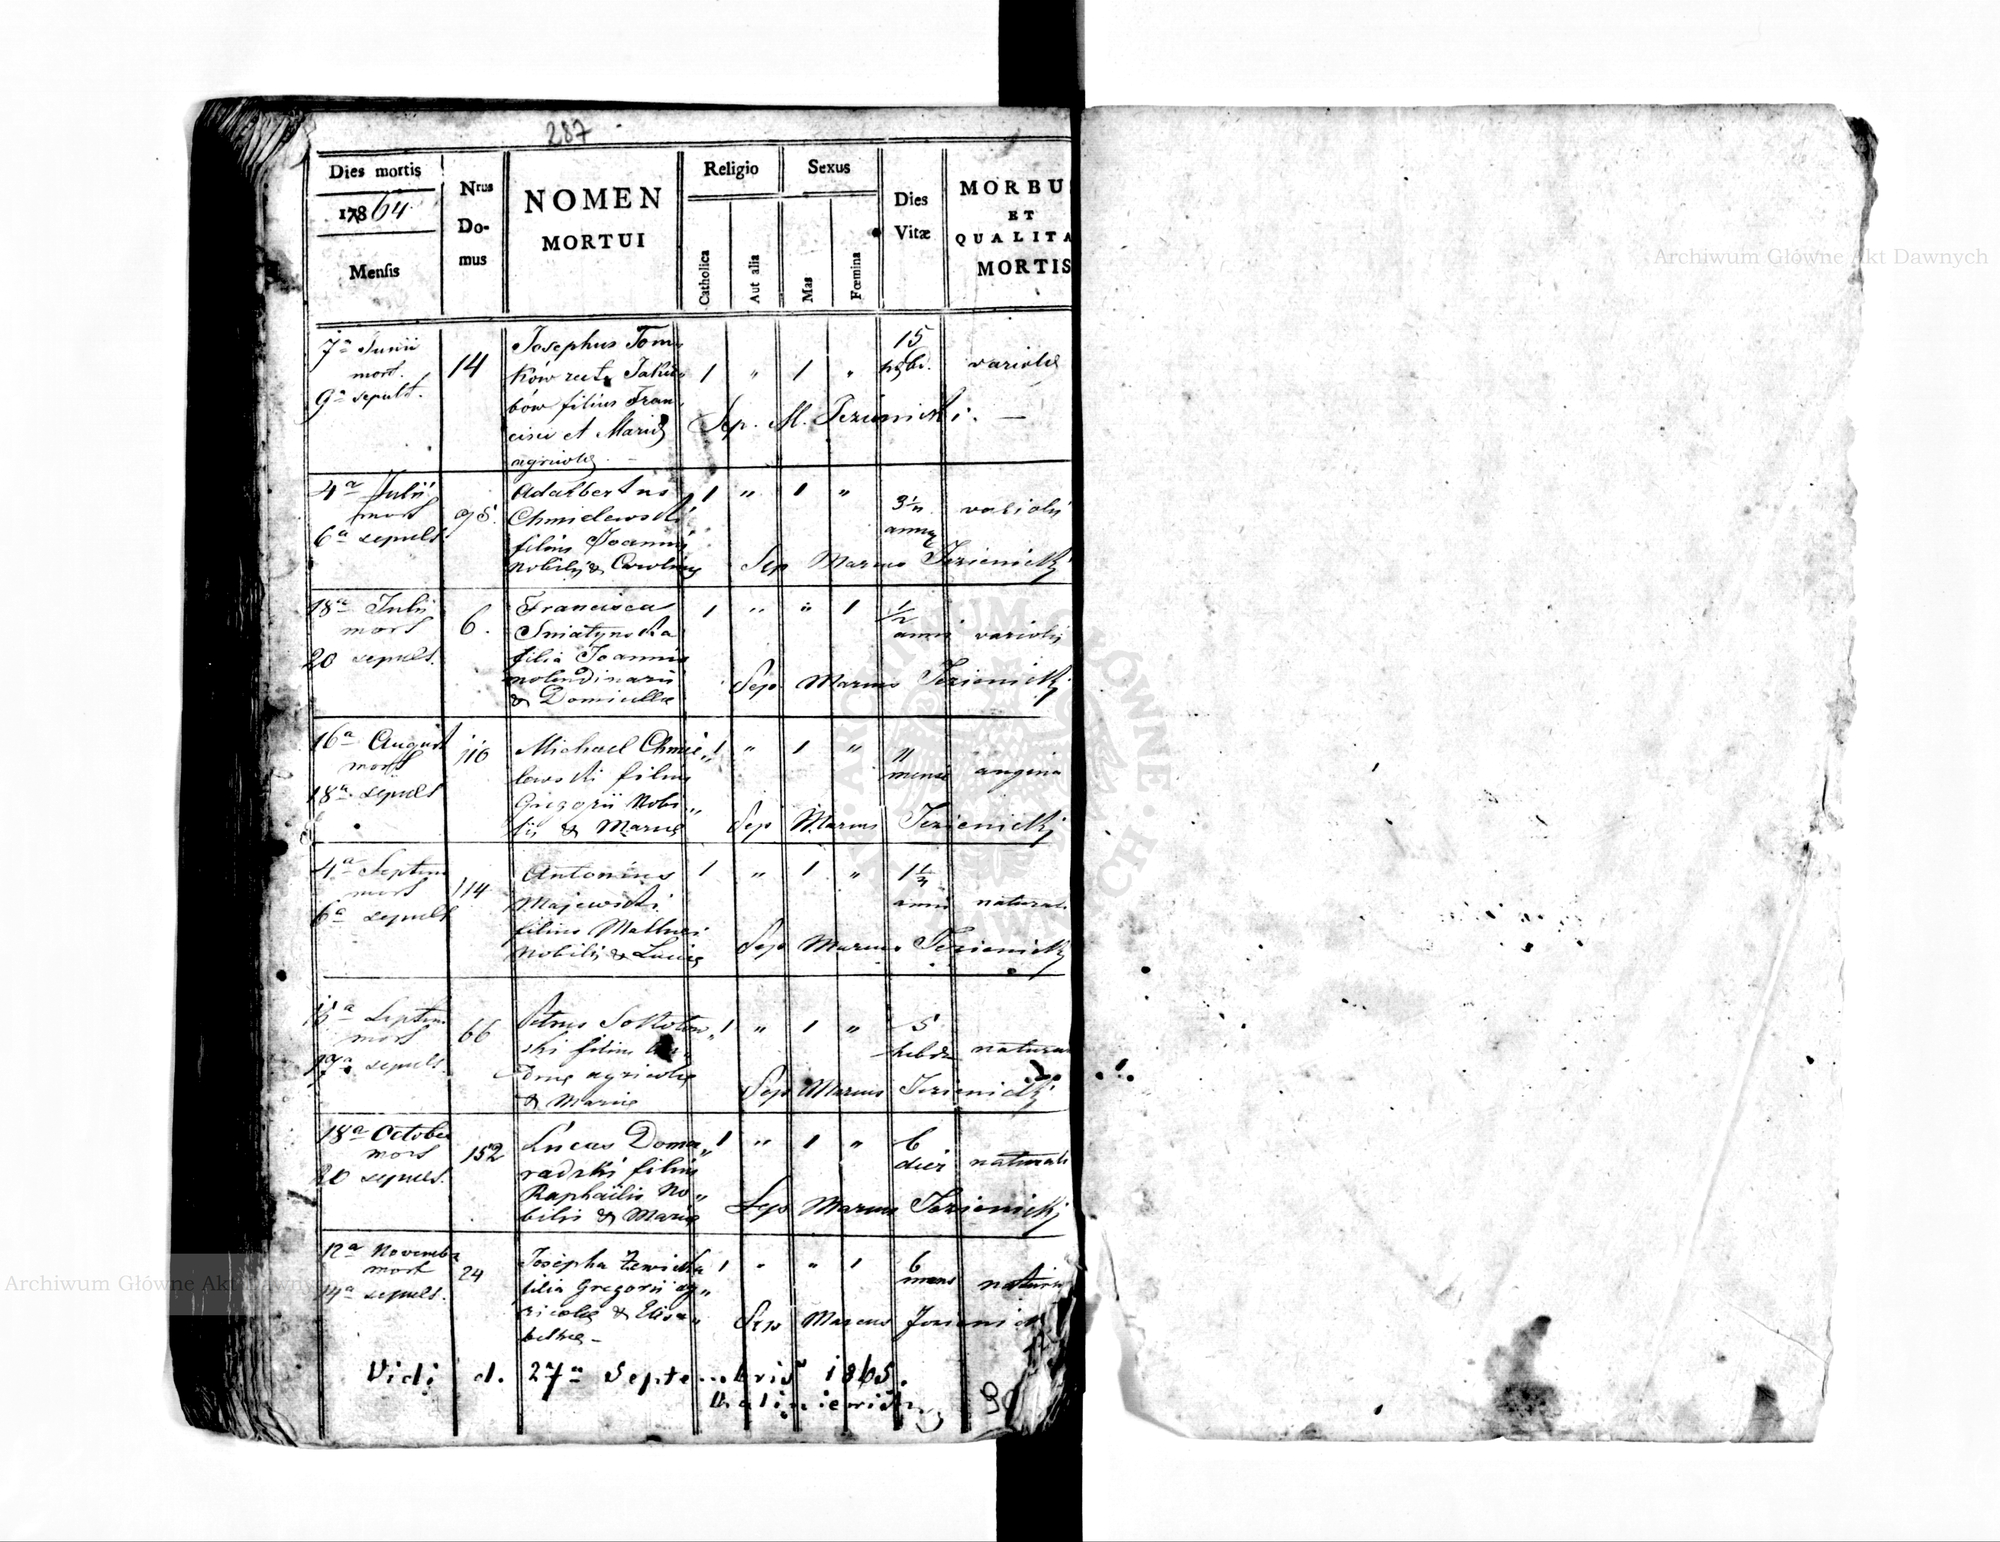 287
Dies mortis
1864
Mensis
Nrus
Do-
mus
NOMEN
MORTUI
Religio
Catholica
Aut alia
Sexus
Mas
Fœmina
Dies
Vitæ
MORBU
ET
QUALITA
MORTIS
7a Junii
mort.
9a sepult.
14
Josephus Tom
ków recte Jaku
bów filius Fran
cisci et Mariæ
agricolæ. -
1 " 1 "
15
variolæ
Sep. M. Jezienicki. —
4a Julii
mort
6a sepult
Adalbertus
Chmielewski
filius Joannis
nobilis & Carolinæ
1 " 1 "
3½
variolis
Sep Marcus Jezienicki
18a Julii
mort
20 sepult.
6.
Francisca
Sniatynska
filia Joannis
molendinarii
& Domicellæ
1 " " 1
1/2
anni
variolis
Sep Marcus Jezienicki
16a August
mort
18a sepult
110
Michael Chmie
lewski filius
Gregorii Nobi"
lis & Mariæ
1 " 1 "
11
mens
angina
Sep Marcus Jezienicki
4a Septem
mort
6a sepult
114
Antonius
Majewski
filius Mathæi
Nobilis & Luciæ
1 " 1 "
anni
natural
Sep Marcus Jezienicki
15a Septem
mort
17a sepult.
66
Petrus Sokołow"
ski filius
agricolæ
& Mariæ
1 " 1 "
5
hebd
natura
Sep Marcus Jezienicki
18a October
mort
20 sepult.
152
Lucas Doma"
radzki filius
Raphaelis No"
bilis & Mariæ
1 " 1 "
6
dies
natural
Sep Marcus Jezienicki
12a Novembr
mort
14a sepult.
24
Josepha
filia Gregorii ag"
ricolæ & Elisa"
bethæ -
1 " " 1
6
mens
natur
Sep Marcus Jezienicki
Vidi d. 27a Septembris 1865.
Archiwum Główne Akt Dawnych
Archiwum Główne Akt Dawnych
ARCHIWUM GŁÓWNE AKT DAWNYCH